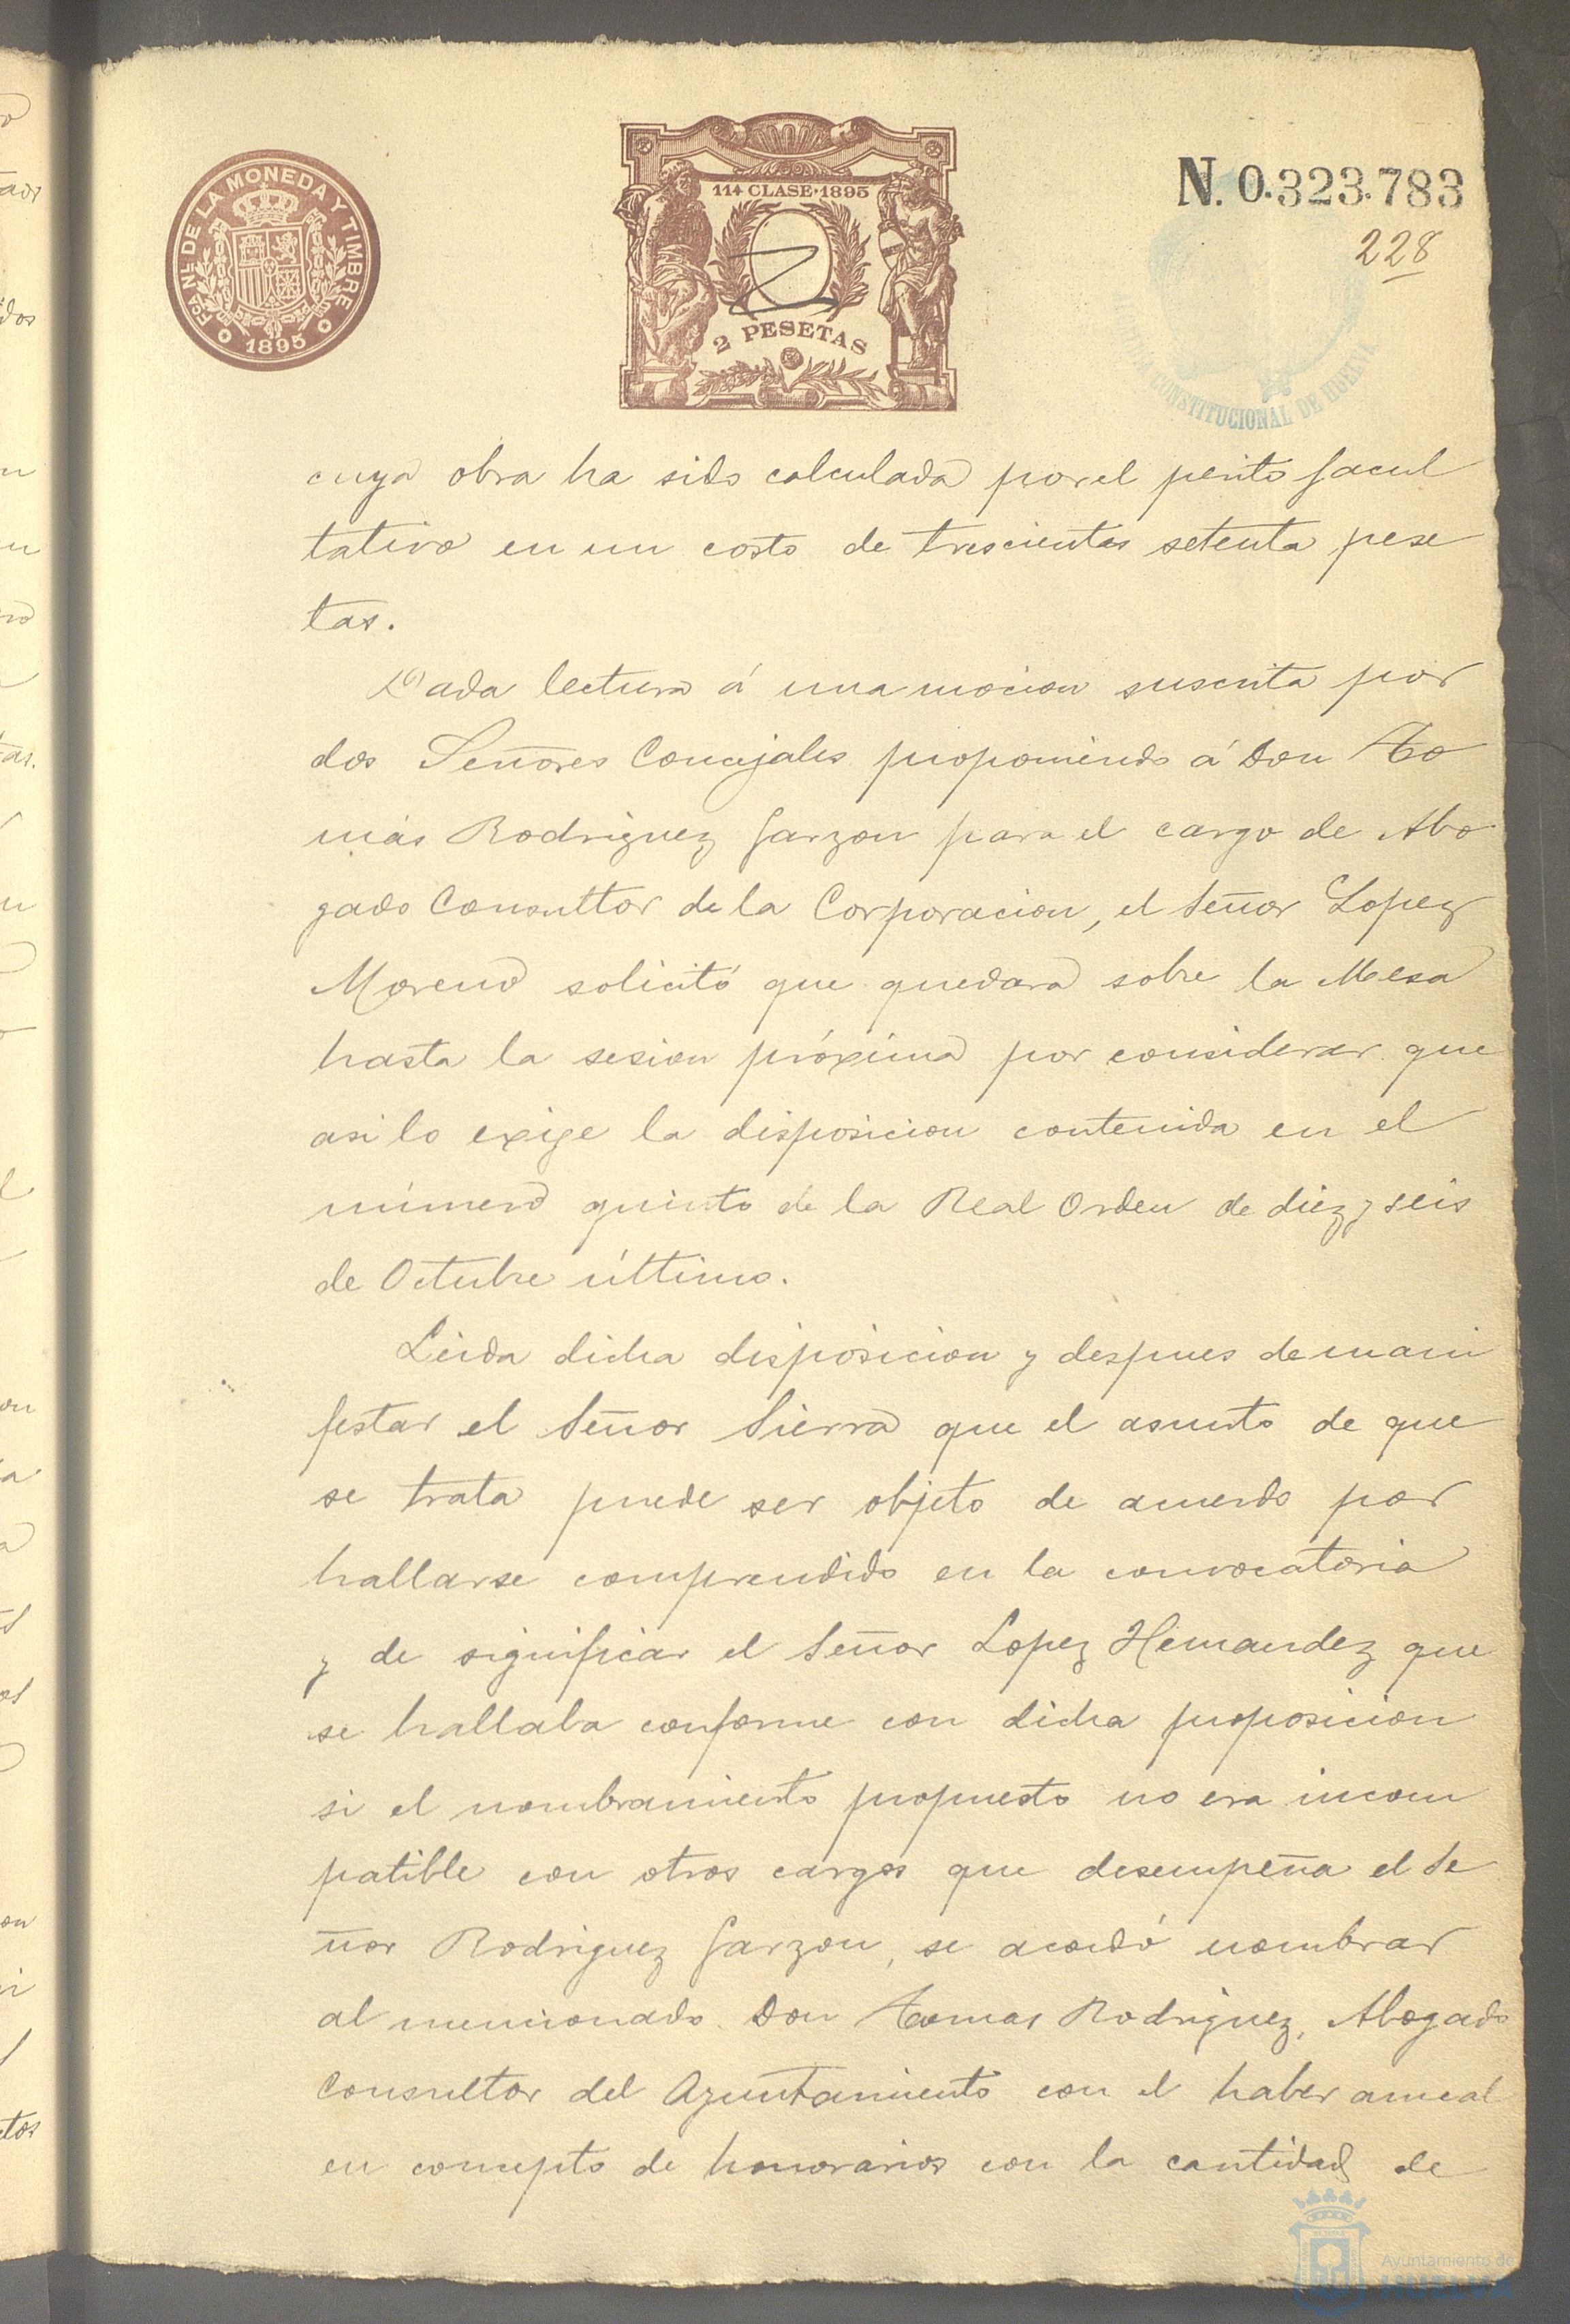 Fca. Nl. DE LA MONEDA Y TIMBRE
1895
11ª CLASE·1895
2 PESETAS
N. 0.323.783
228
CONSTITUCIONAL DE HUELVA
cuya obra ha sido calculada por el perito facul
tativo en un costo de trescientas setenta pese
tas.
Dada lectura á una mocion suscrita por
dos Señores Concejales proponiendo á Don To
más Rodriguez Garzon para el cargo de Abo
gado Consulttor de la Corporacion, el Señor Lopez
Moreno solicitó que quedara sobre la Mesa
hasta la sesion próxima por considerar que
asi lo exige la disposicion contenida en el
número quinto de la Real Orden de diez y seis
de Octubre último.
Leida dicha disposicion y despues de mani
festar el Señor Sierra que el asunto de que
se trata puede ser objeto de acuerdo por
hallarse comprendido en la convocatoria
y de significar el Señor Lopez Hernandez que
se hallaba conforme con dicha proposicion
si el nombramiento propuesto no era incom
patible con otros cargos que desempeña el Se
ñor Rodriguez Garzon, se acordó nombrar
al mencionado Don Tomas Rodriguez, Abogado
Consultor del Ayuntamiento con el haber anual
en concepto de honorarios con la cantidad de
Ayuntamiento de
HUELVA